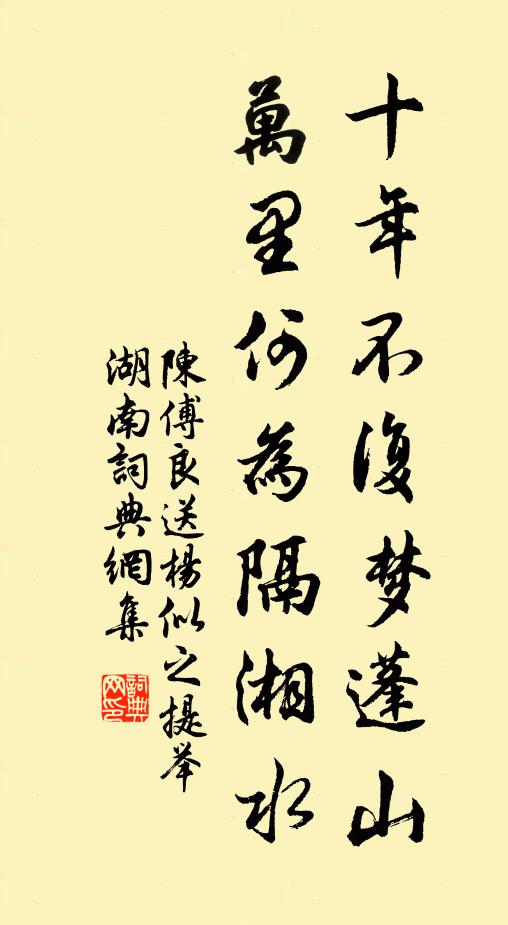 十年不復梦蓬山
萬里何為隔湘水
陳傅良送楊似之提举
湖南詞典網集
詞典
网印